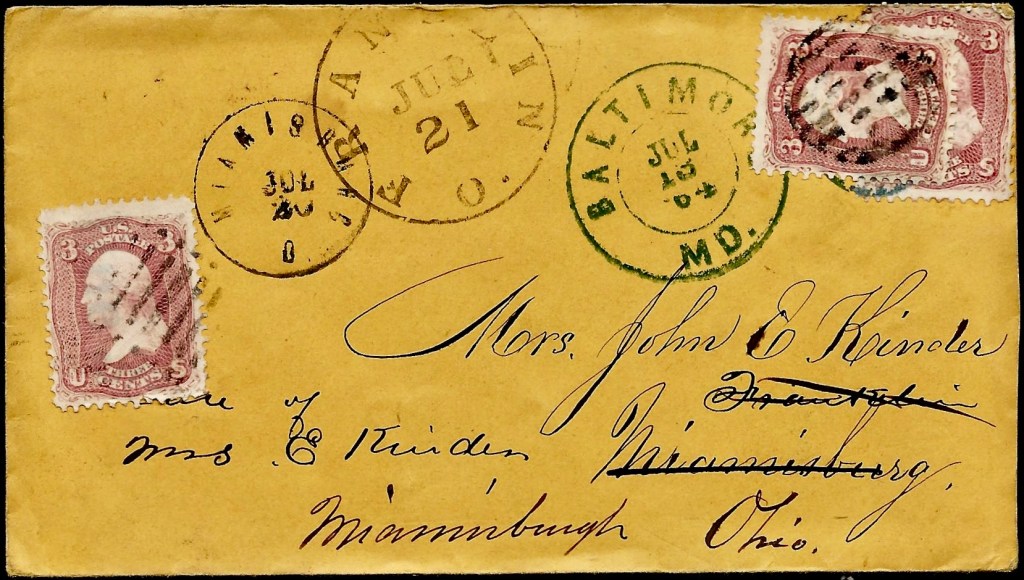 FRANKLIN
JUL
21
O.
MIAMISBURG
JUL
O
BALTIMORE
JUL
18
64
MD.
3 U.S. POSTAGE 3
U THREE CENTS S
U.S. 3
U S
3 U.S.
3 U
Mrs. John E Kinder
Franklin
Care of
Mrs E Kinden
Miamisburg,
Miaminburgh Ohio.